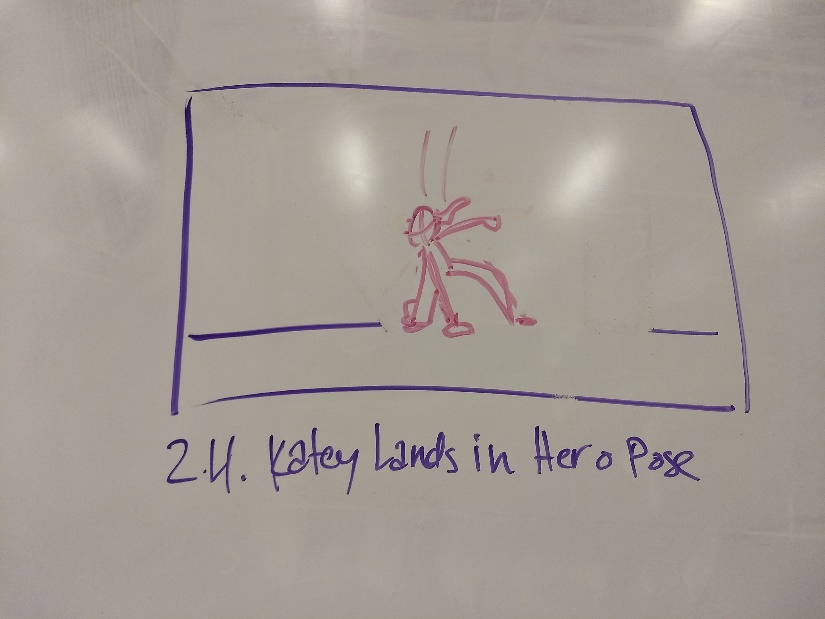 2.4. Katey Lands in Hero Pose